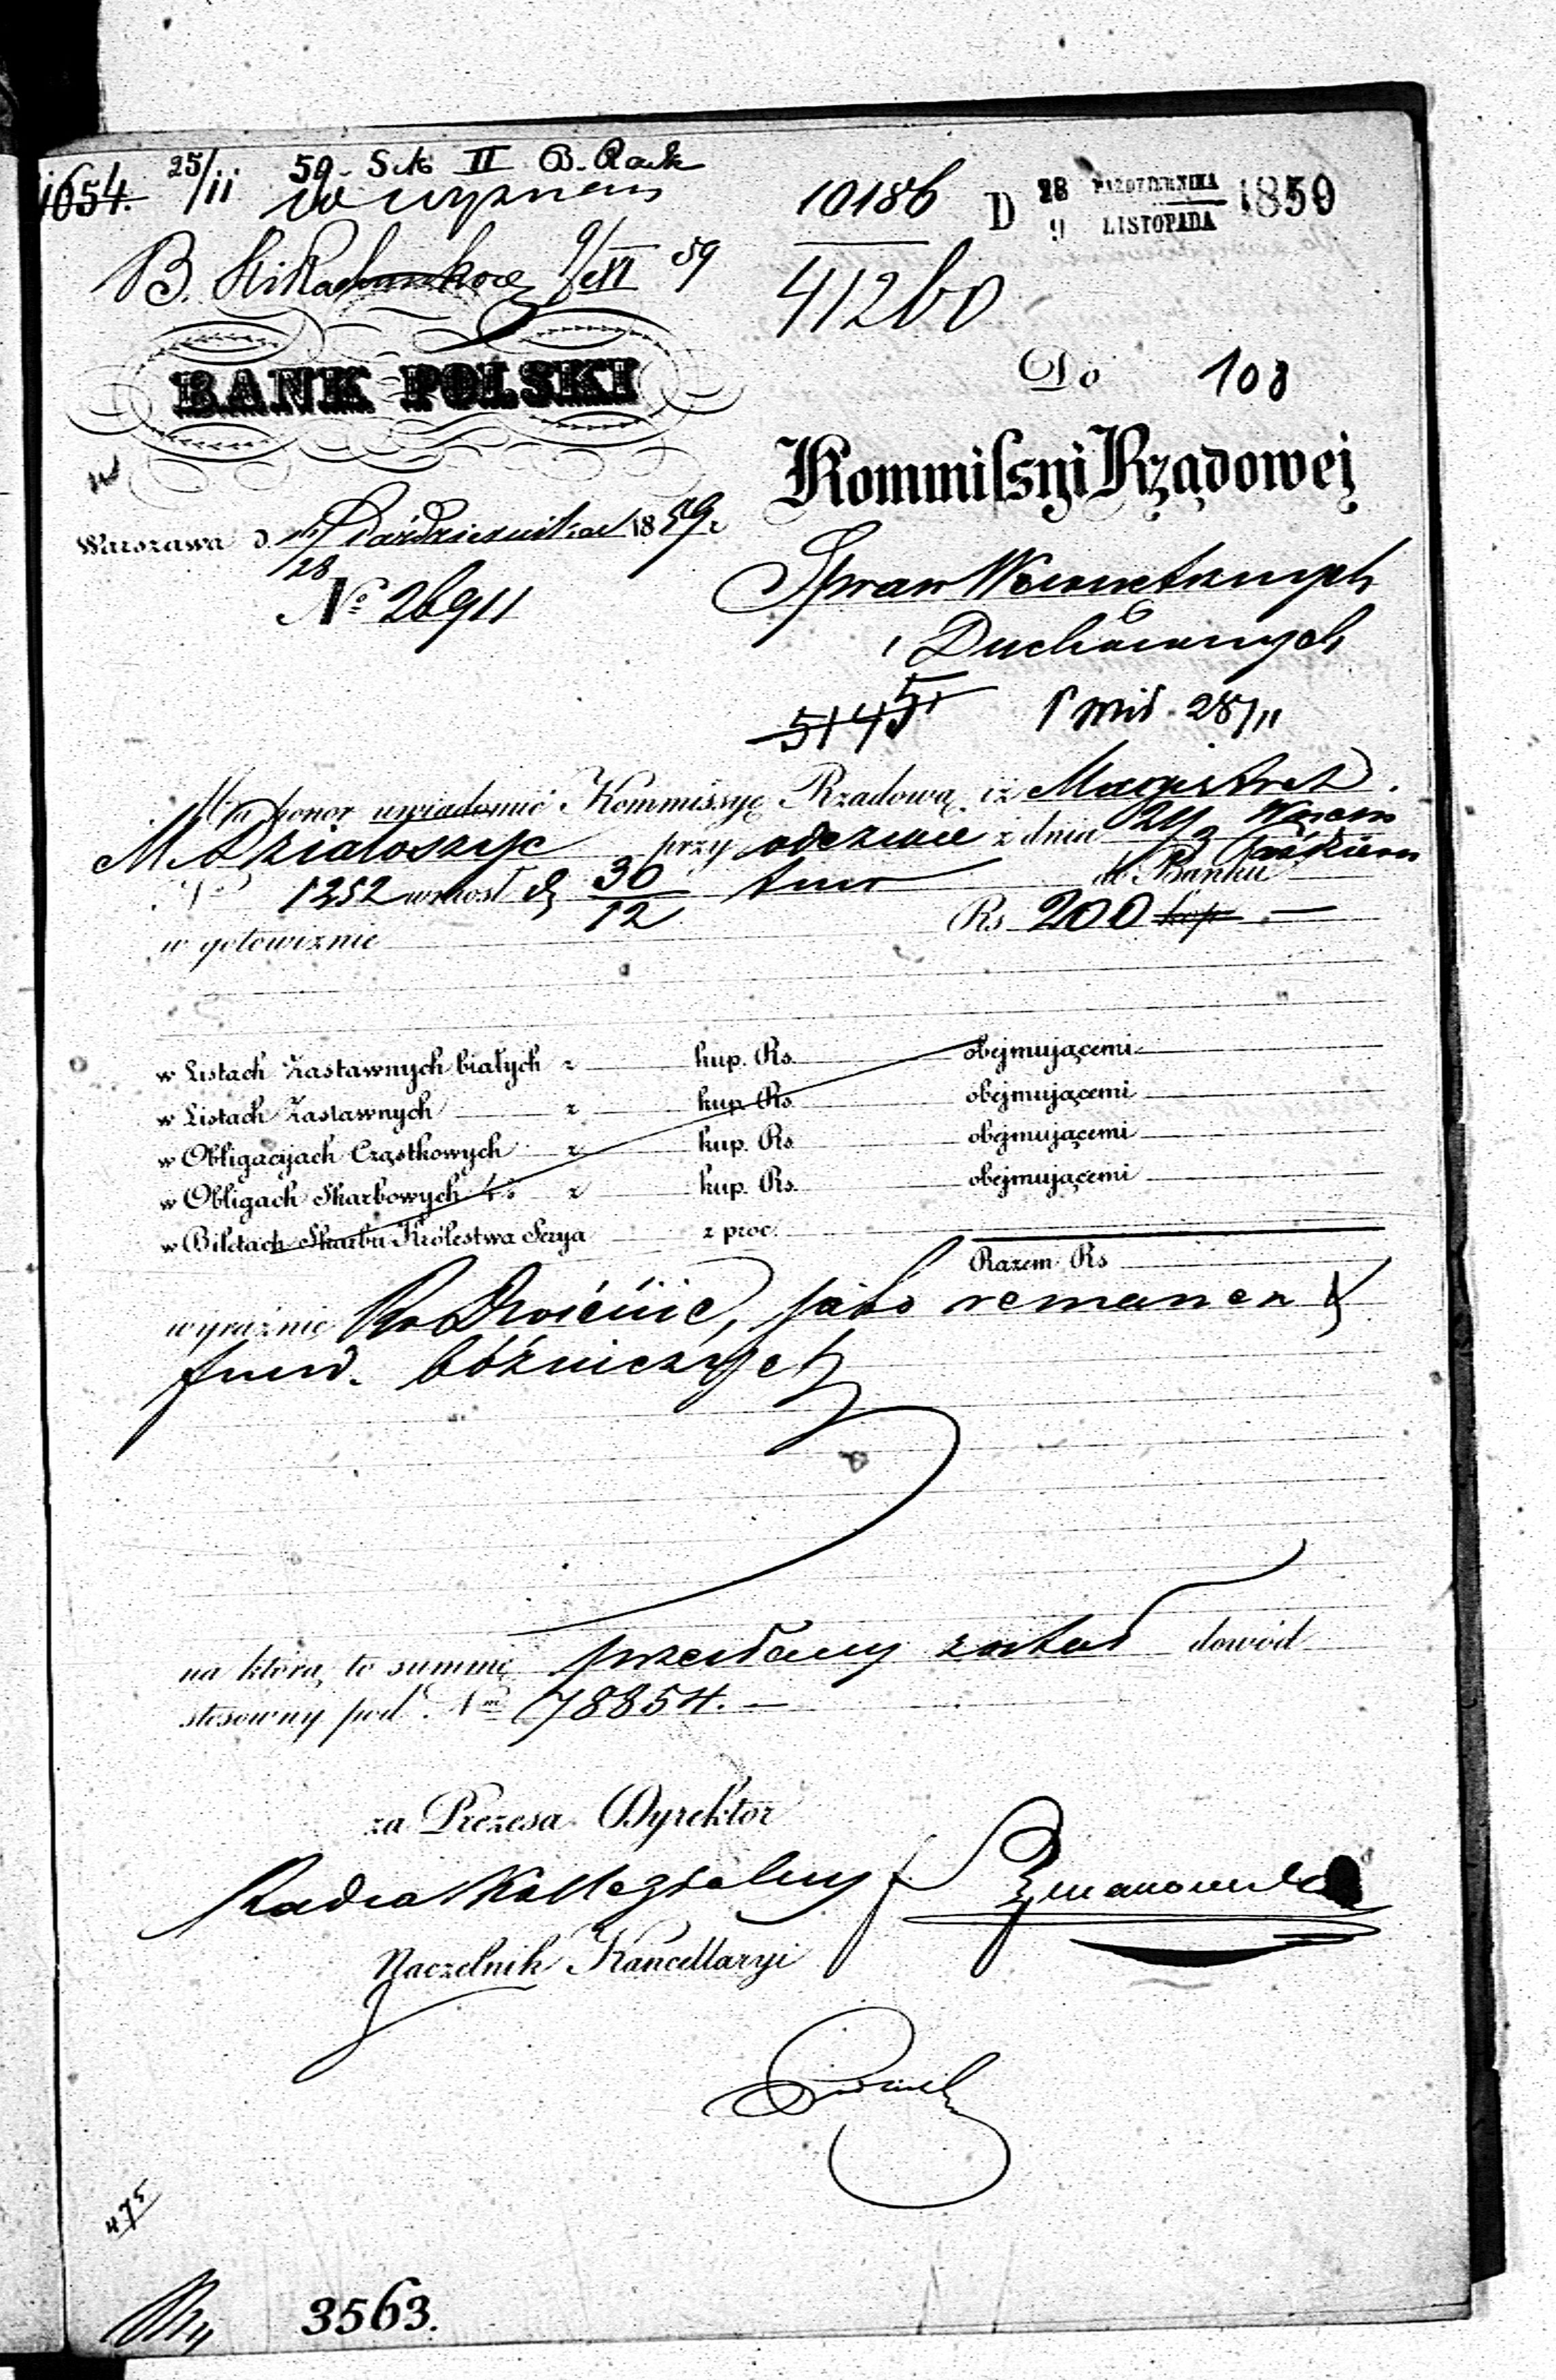 1654. 25/11 59. Sek II B. Rach
do wyznan
B. 9/XI 59
10186
41260
D 28 PAŹDZIERNIKA 1859
9 LISTOPADA
BANK POLSKI
Do 108
Kommissyi Rządowej
Warszawa d. Października 1859 r.
28
Nº 26911
Spraw Wewnetrznych
i Duchownych
5145 28/11
Ma honor uwiadomić Kommissyę Rządową, iż Magistrat
M. Działoszyc przy odezwie z dnia
Nº 1252 wniosł d. 30/12 do Banku
w gotowiznie Rs. 200 kop. —
w Listach Zastawnych białych z kup. Rs. obejmującemi
w Listach Zastawnych z kup. Rs. obejmującemi
w Obligacyach Cząstkowych z kup. Rs. obejmującemi
w Obligach Skarbowych 4% z kup. Rs. obejmującemi
w Biletach Skarbu Królestwa Serya z proc.
Razem Rs
wyraźnie Rs Dwieście, jako remanent
fund. bóżniczych
na którą to summę przesłany został dowód
stosowny pod Nm 78854. —
za Prezesa Dyrektor
Radca Kollegialny
Naczelnik Kancellaryi
475
3563.